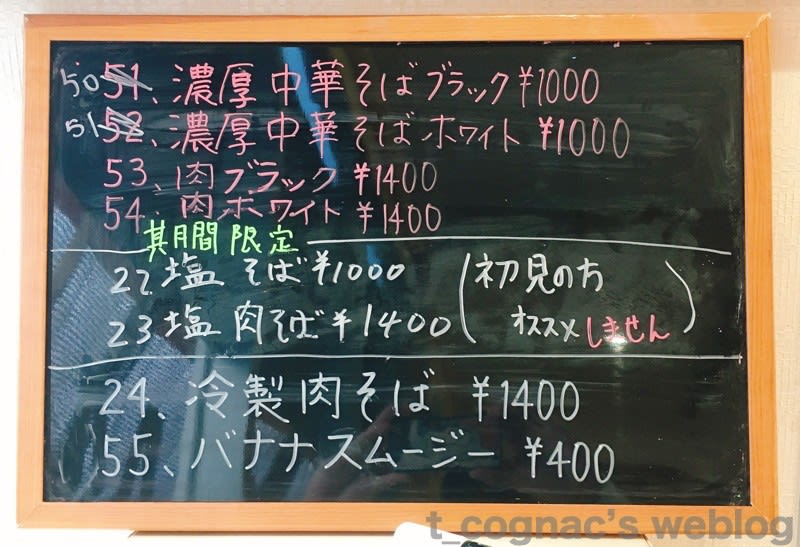 50 51、濃厚中華そばブラック ¥1000
51 52、濃厚中華そばホワイト ¥1000
53、肉ブラック ¥1400
54、肉ホワイト ¥1400
其月間限定
22 塩そば ¥1000 (初見の方
23 塩肉そば ¥1400 オススメしません)
24、冷製肉そば ¥1400
55、バナナスムージー ¥400
t_cognac's weblog